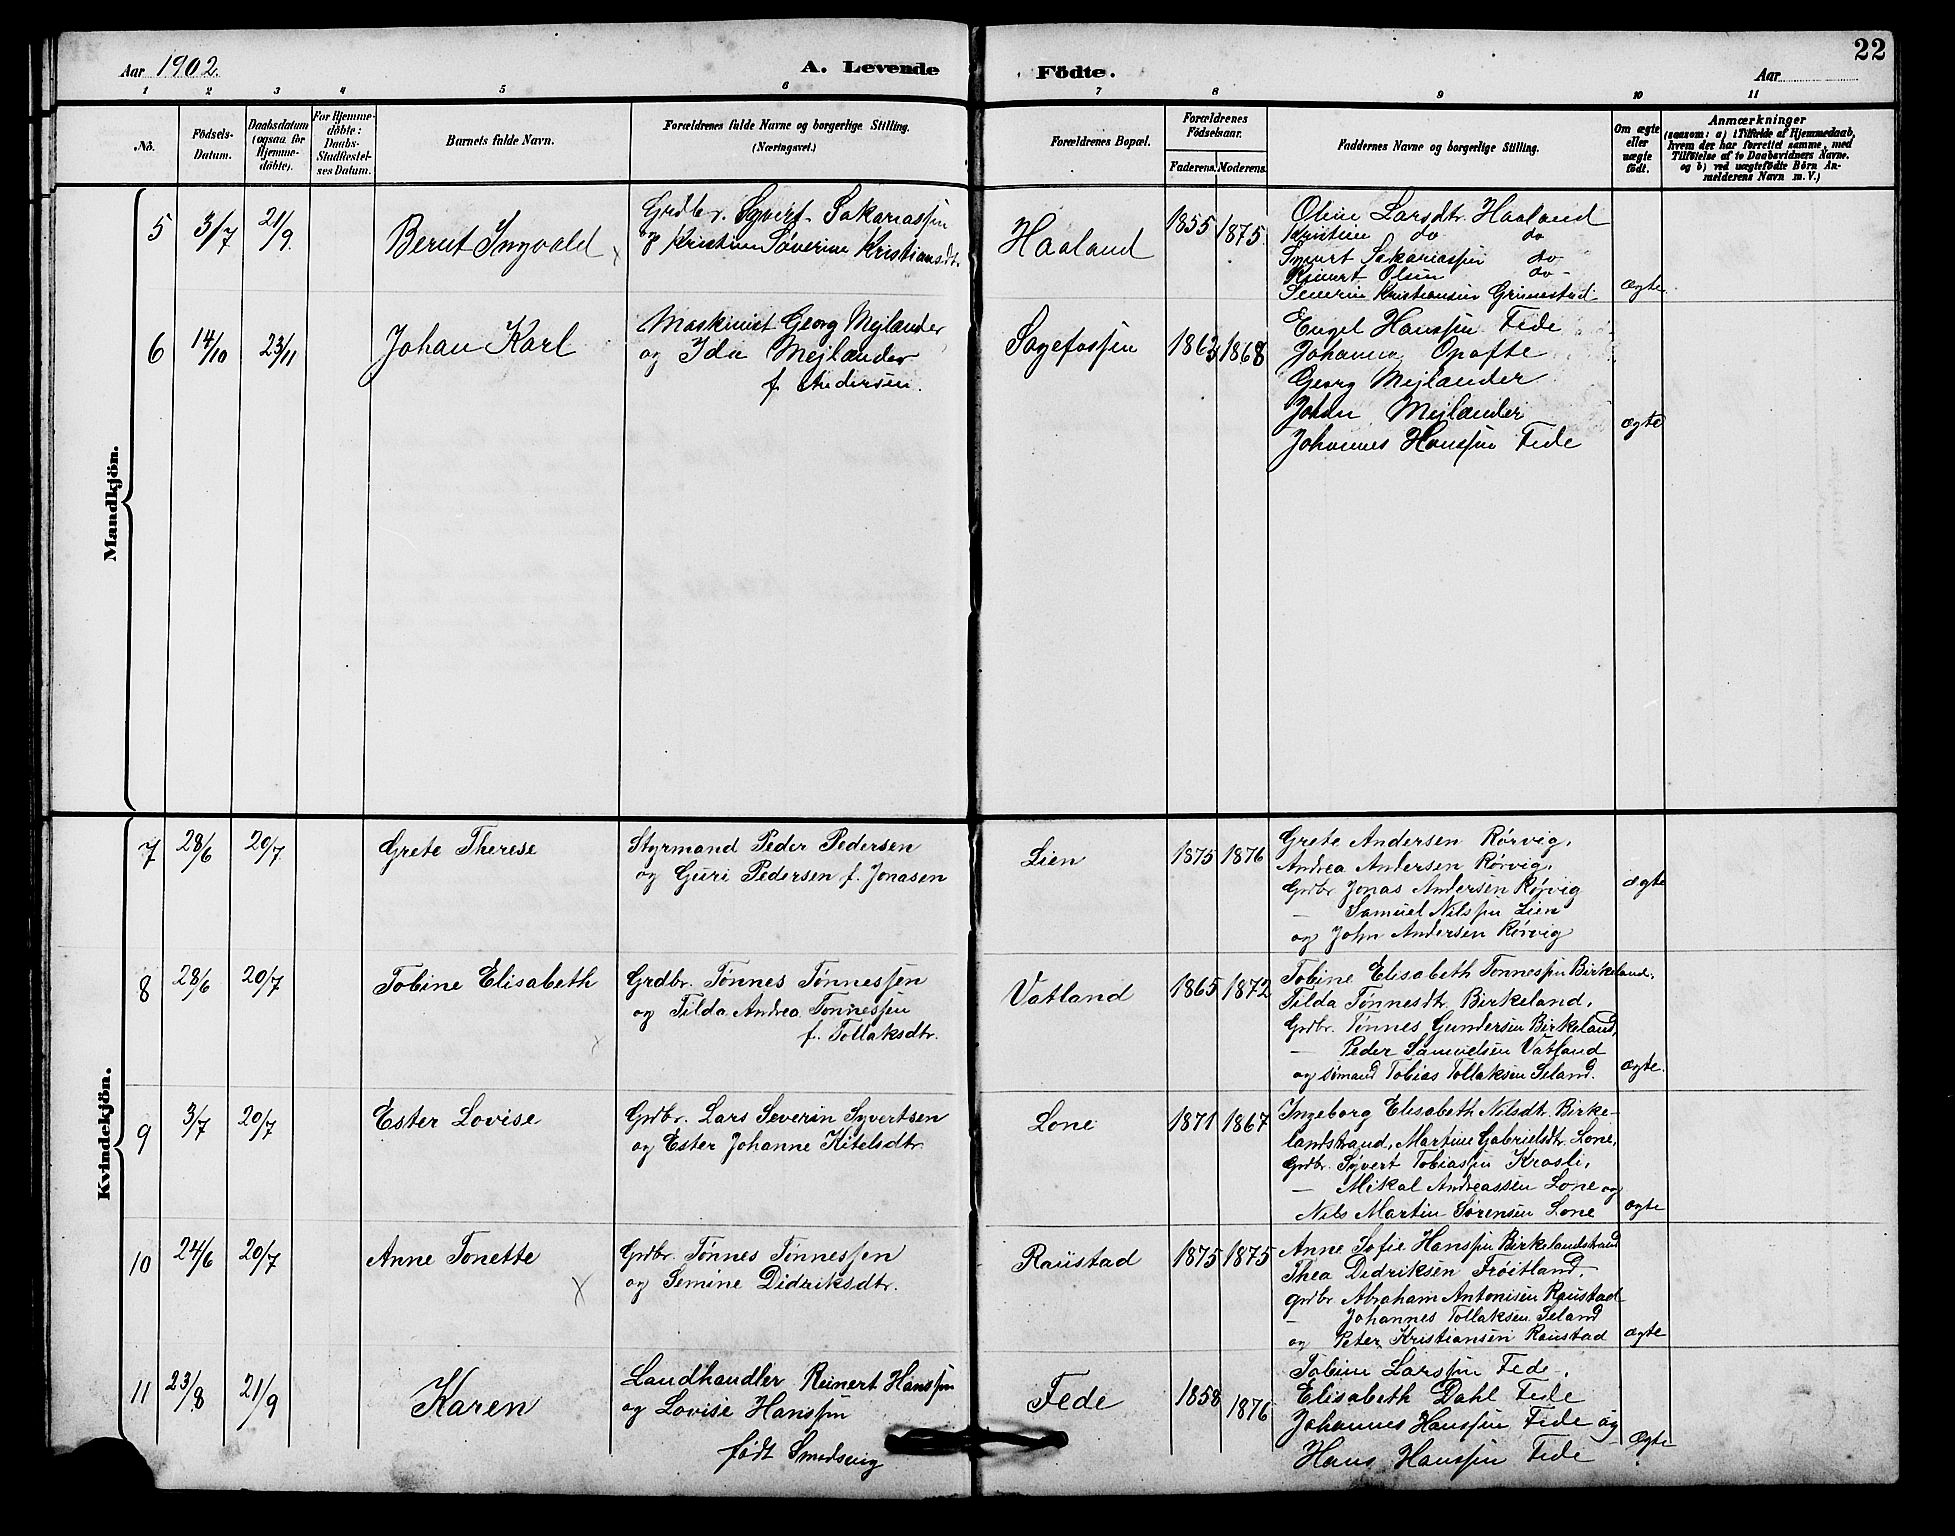 22
Aar 1902. A. Levende Födte. Aar
1 2 3 4 5 6 7 8 9 10 11
No. Födsels-Datum. Daabsdatum (ogsaa for Hjemmedöbte). For Hjemmedöbte: Daabs-Stadfæstelses Datum. Barnets fulde Navn. Forældrenes fulde Navne og borgerlige Stilling. (Næringsvei.) Forældrenes Bopæl. Forældrenes Födselsaar. Faderens. Moderens. Faddernes Navne og borgerlige Stilling. Om ægte eller uægte födt. Anmærkninger (saasom: a) i Tilfælde af Hjemmedaab, hvem der har forrettet samme, med Tilföielse af to Daabsvidners Navne. og b) ved uægtefödte Börn Anmelderens Navn m. V.)
Mandkjön.
5 3/7 21/9 Berut Ingvald Grdbr. Syvert Sakariassen Haaland 1855 1875 Oline Larsdtr. Haaland
og Kristine Severine Kristiansdt. Kristine do do
Syvert Sakariassen do
Reinert Olsen do
Severin Kristiansen Grimestad ægte
6 14/10 23/11 Johan Karl Maskinist Georg Mejlænder Sagefossen 1863 1868 Engel Hanssen Fede
og Ida Mejlænder Johanna Opofte
f. Andersen. Georg Mejlænder
Johan Mejlænder
Johannes Hanssen Fede ægte
Kvindekjön.
7 28/6 20/7 Grete Therese Styrmand Peder Pedersen Lien 1875 1876 Grete Andersen Rørvig,
og Guri Pedersen f. Jonasen Andrea Andersen Rørvig,
Grdbr Jonas Andersen Rørvig
— Samuel Nilssen Lien
og John Andersen Rørvig ægte
8 28/6 20/7 Tobine Elisabeth Grdbr. Tønnes Tønnessen Vatland 1865 1872 Tobine Elisabeth Tønnessen Birkeland,
og Tilda Andrea Tønnessen Tilda Tønnesdtr. Birkeland,
f. Tollaksdtr. Grdbr. Tønnes Gundersen Birkeland,
— Peder Samuelsen Vatland
og sömand Tobias Tollaksen Seland. ægte.
9 3/7 20/7 Ester Lovise Grdbr. Lars Severin Syvertsen Lone 1871 1867 Ingeborg Elisabeth Nilsdt. Birke-
og Ester Johanne Kitelsdtr. landstrand, Martine Gabrielsdtr. Lone,
Grdbr. Syvert Tobiassen Krosli,
— Mikal Andreassen Lone og
Nils Martin Sørensen Lone ægte
10 24/6 20/7 Anne Tonette Grdbr. Tønnes Tønnessen Raustad 1875 1875 Anne Sofie Hanssen Birkelandstrand
og Semine Didriksdtr. Thea Didriksen Frøitland,
grdbr Abraham Antonisen Raustad
— Johannes Tollaksen Seland
og Peter Kristiansen Raustad ægte
11 23/8 21/9 Karen Landhandler Reinert Hanssen Fede 1858 1876 Tobine Larssen Fede,
og Lovise Hanssen Elisabeth Dahl Fede
født Smedsvig Johannes Hanssen Fede og
Hans Hanssen Fede Ægte